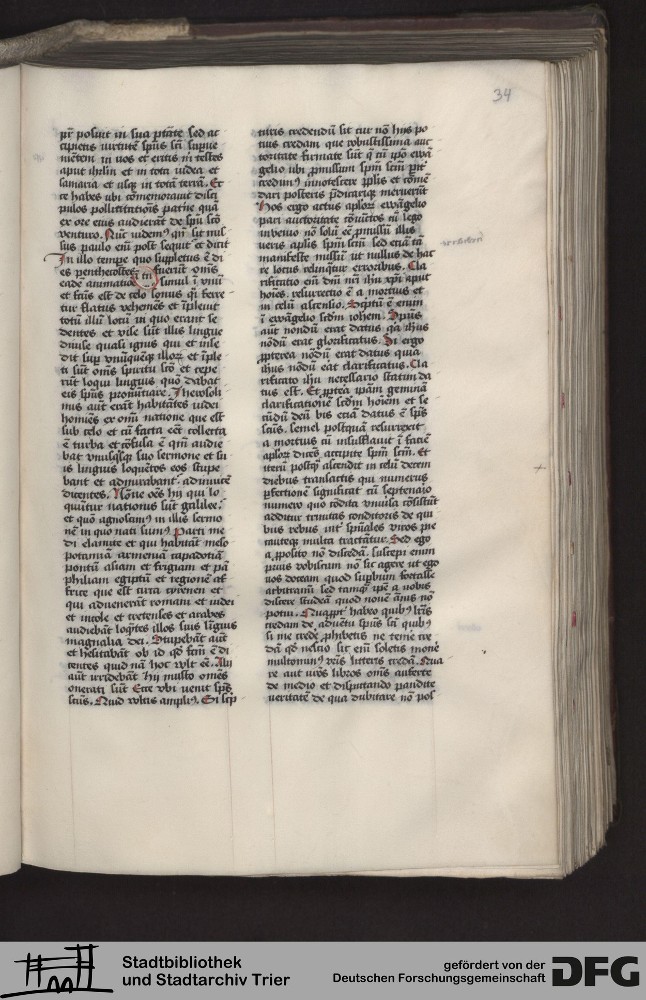 34
pr̄ posuit in sua ptāte sed ac
cipietis virtutē spūs sc̄i supue
niētem in vos et eritis m̄ testes
aput ihrlm et in tota iudea et
samaria et usq; in totā terrā. Et
te habes ubi cōmemorauit disci
pulos pollicitationis patrie quā
ex ore eius audierāt de spū scō
venturo. Nūc videm9 qn̄ sit mis
sus paulo em̄ post sequit et dicit
In illo tempe quo suppletus ē di
es penthecostes fuerūt om̄s
eadē animatiōe simul ī vnū
et factus est de celo sonus qi ferre
tur flatus vehemēs et īpleuit
totū illū locū in quo erant se
dentes et vise sūt illis lingue
diuise quasi ignis qui et inse
dit sup vnūquēq; illoꝝ et īple
ti sūt om̄s spiritu scō et cepe
rūt loqui linguis quō dabat
eis spūs pronūtiare. Iherosoli
mis aūt erāt habitātes iudei
homiēs ex om̄i natione que est
sub celo et cū facta eēt
ē turba et cōfusa ē qm̄ audie
bat vnusq;sq; suo sermone et su
is linguis loquētes eos stupe
bant et admirabant adinuicē
dicentes. Nōne oēs hij qui lo
quūtur nationis sūt galilee
et quō agnoscim9 in illis sermo
nē in quo nati sum9 Parti me
di elamite et qui habitāt meso
potamiā armeniā capadociā
pontū asiam et frigiam et pā
philiam egiptū et regionē af
frice que est circa cyrenen et
qui aduenerāt romani et iudei
et incole et cretenses et arabes
audiebāt loquētes illos suis liguis
magnalia dei. Stupebāt aūt
et hesitabāt ob id qd̄ fcm̄ ē di
centes quid nā hoc vlt eē. Alij
aūt irridebāt hij musto om̄es
onerati sūt Ecce vbi venit spūs
scūs. Quid vltis ampli9. Si scp
turis credendū sit cur nō hijs po
tius credam que robustissima auc
toritate firmate sūt
gelio vbi pmissum spm̄ scm̄
credim9 innotescere pplis et cōmē
dari posteris pdicariq; meruerūt
Hos ergo actus aploꝝ ewāgelio
pari auctoritate cōiūctos cū lego
inuenio nō solū eē pmissū illis
veris aplis spm̄ scm̄ sed etiā tā
manifeste missū ut nullus de hac
re locus relinq̄tur erroribus. Cla
rificatio em̄ dn̄i nr̄i ihu xpi aput
hoīes resurrectio ē a mortuis et
in celū ascensio. Scptū ē enim
ī ewāgelio scdm̄ iohem. Spūs
aūt nondū erat datus qa ihus
nōdū erat glorificatus. Si ergo
ppterea nōdū erat datus quia
ihus nōdū eāt clarificatus. Cla
rificato ihu necessario statim da
tus est. Et pterea ipam geminā
clarificationē scdm̄ hoīem et se
cūdū deū bis etiā datus ē spūs
scūs. Semel postquā resurrexit
a mortuis cū insufflauit ī faciē
aploꝝ dicēs accipite spm̄ scm̄. Et
iterū postq ascendit in celū decem
diebus transactis qui numerus
pfectionē significat cū septenaio
numero quo cōdita vniūsa cōsistūt
additur trinitas conditoris de qui
bus rebus int spūales viros pie
cauteq; multa tractātur. Sed ego
a pposito nō discedā. suscepi enim
prius vobiscum nō sic agere ut ego
vos doceam quod supbum fortasse
arbitramī sed tamq ipe a vobis
discere studeā quod noue ānis nō
potui. Nūc habeo quib9 lrīs
credam de aduētu spūs scī quib9
si me crede phibetis ne temere cre
dā qd̄ nescio sic em̄ soletis mone
multomin9 vrīs litteris credā. Qua
re aut vrōs libros om̄s auferte
de medio et disputando pandite
veritatē de qua dubitare nō pos
Stadtbibliothek
und Stadtarchiv Trier
gefördert von der
Deutschen Forschungsgemeinschaft
DFG